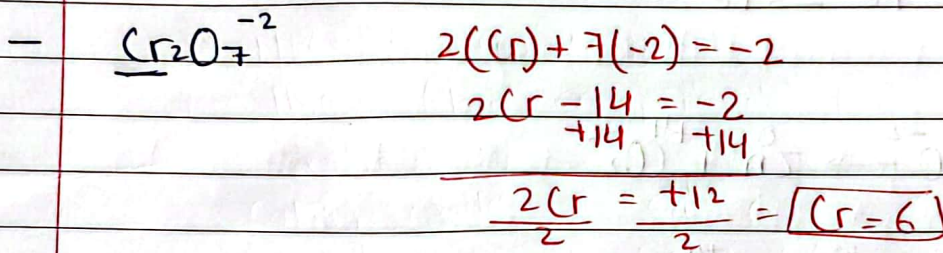 — Cr2O7^-2 2(Cr) + 7(-2) = -2
2Cr - 14 = -2
+14 +14
2Cr/2 = +12/2 = Cr = 6